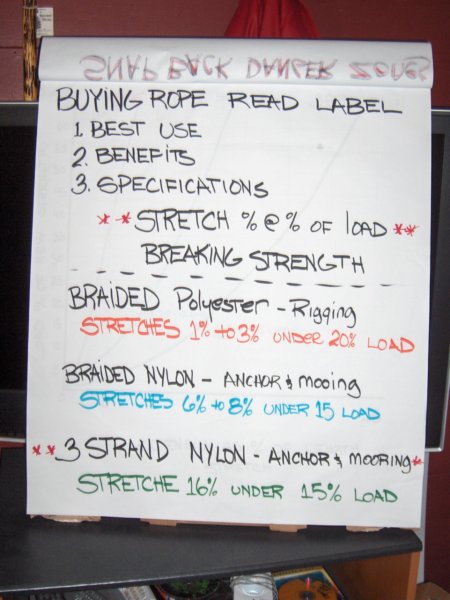 SNAP BACK DANGER ZONES
BUYING ROPE READ LABEL
1. BEST USE
2. BENEFITS
3. SPECIFICATIONS
**STRETCH % @ % OF LOAD **
BREAKING STRENGTH
BRAIDED Polyester - Rigging
STRETCHES 1% to 3% UNDER 20% LOAD
BRAIDED NYLON - ANCHOR & mooing
STRETCHES 6% to 8% UNDER 15 LOAD
** 3 STRAND NYLON - ANCHOR & MOORING*
STRETCHE 16% UNDER 15% LOAD